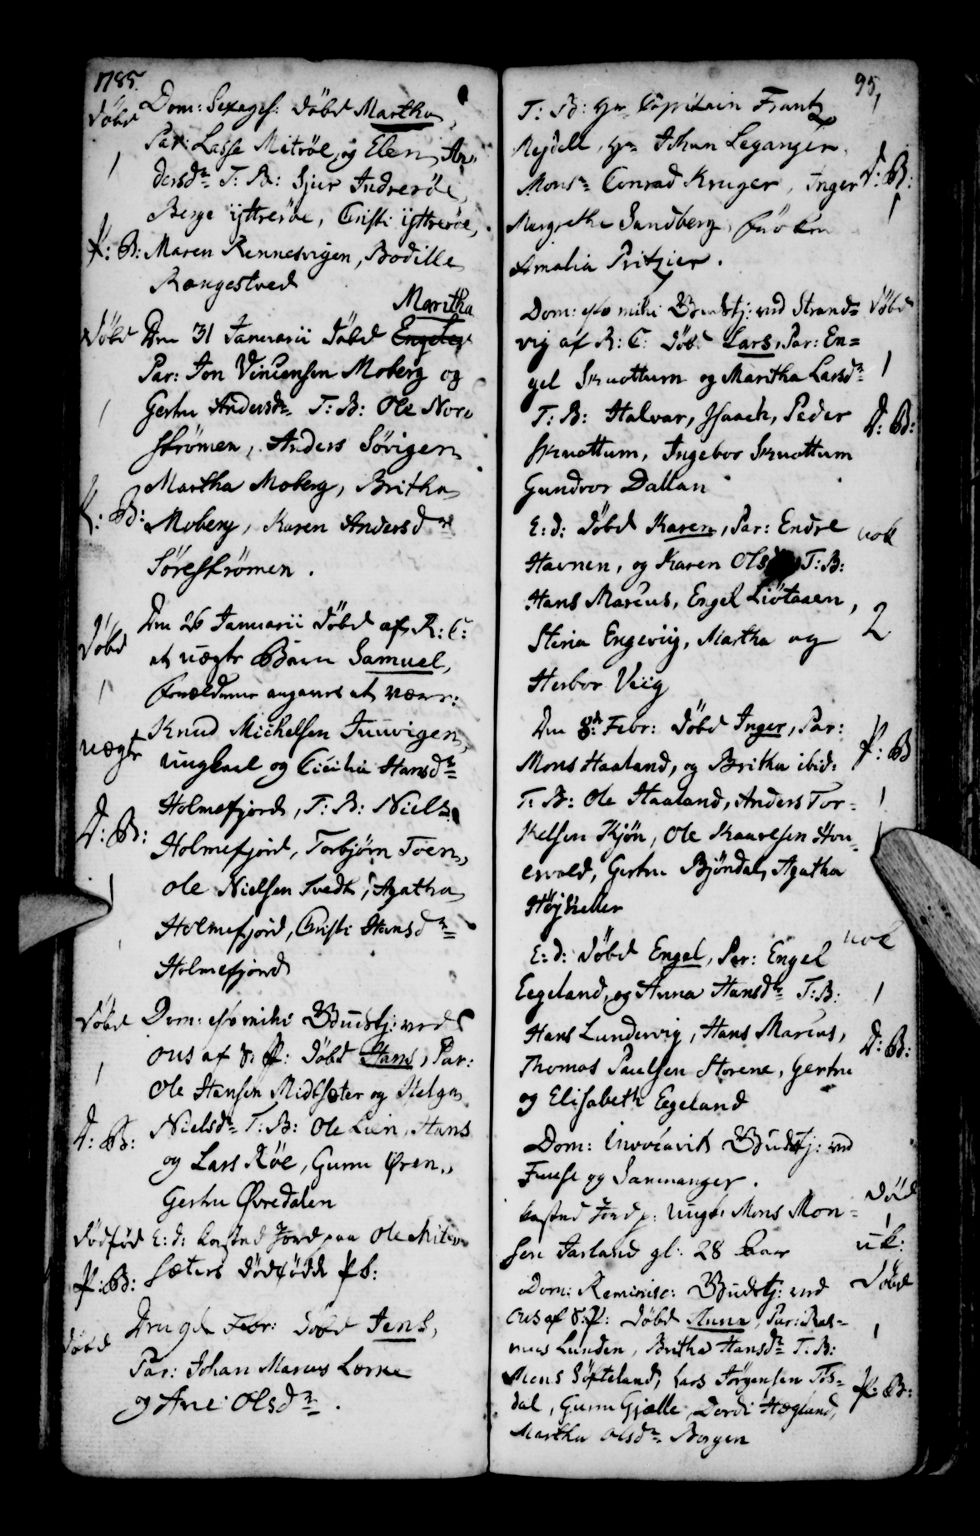 1785.
Døbd Dom: Sexages: døbd Martha,
Par: Lasse Midtøe, og Elen An-
1 dersdr T: B: Sjur Indrerøe,
Berge ÿttrerøe, Christi ÿttrerøe,
P: B: Maren Rennesvigen, Bodille
Rongestved
Maritha
Døbd Den 31 Januarii døbd Engelet
Par: Jon Vincensen Moberg og
1 Gertru Andersdr T: B: Ole Nore
strømen, Anders Søvigen
Martha Moberg, Britha
P: B: Moberg, Karen Andersdr
Sørestrømen.
Døbd Den 26 Januarii døbd af R: C:
et uægte Barn Samuel,
1 Forældrene angaves at være:
Knud Michelsen Juuvigen,
uægte ungkarl og Cicilia Hansdr
Holmefjord, T: B: Niels
D: B: Holmefjord, Torbjørn Toen,
1 Ole Nielsen Tvedt, Agatha
Holmefjord, Christi Hansdr
Holmefjord
Døbd Dom: esto mihi Gudstj: ved
Ous af S: P: døbd Hans, Par:
1 Ole Hansen Midtsæter og Helga
D: B: Nielsdr T: B: Ole Lien, Hans
og Lars Røe, Guru Øren,
Gertru Øvredalen
Dødfød E: d: kasted Jord paa Ole Mit
P: B: sæters dødfødde
Døbd D: Febr: døbd Jens,
Par: Johan Marcus Lorne
og Ane Olsdr.
95,
T: B: Hr Capitain Frantz
Mejdell, Hr Johan Leganger,
Monsr Conrad Kruger, Inger D: B:
Margrethe Sandberg, frøken 1
Amalia Pritzier.
Dom: esto mihi Gudstj: ved Strand- Døbd
vig af R: C: døbd Lars, Par: En=
gel Skuottum og Maritha Larsdr 1
T: B: Halvor, Isaach, Peder D: B:
Skuottum, Ingebor Skuottum
Gundvor Dallan
E: d: døbd Karen, Par: Endre nok
Havnen, og Karen Olsdr T: B:
Hans Marcus, Engel Liøtaaen, 2
Steria Engeviig, Martha og
Herbor Viig
Den 8de Febr: døbd Inger, Par:
Mons Haaland, og Britha ibid: P: B
T: B: Ole Haaland, Anders Tor- 1
kelsen Kjøn, Ole Kaaresen Hou-
esvold, Gertru Bjöndal, Agatha
Højsæter
E: d: døbd Engel, Par: Engel nok
Eegeland, og Anna Hansdr T: B: 1
Hans Lundervig, Hans Marcus, D: B:
Thomas Paulsen Storene, Gertru
og Elisabeth Eegeland
Dom: Invocavit Gudstj: ved
Fuuse og Sammanger. Død
kasted Jord p: ungk: Mons Mon- 1
sen Jarland gl: 28 Aar uk:
Dom: Reminisc: Gudstj: ved Døbd
Ous af S: P: døbd Anna, Par: Ras-
mus Lunden, Britha Hansdr T: B: 1
Mons Søfteland, Lars Jørgensen Tøs-
dal, Guru Gjælle, Dordi Hægland, P: B:
Martha Olsdr Borgen